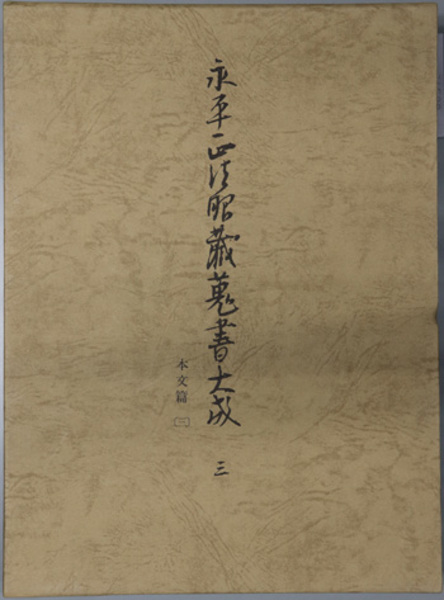 永平正法眼蔵蒐書大成 三
本文篇〔三〕